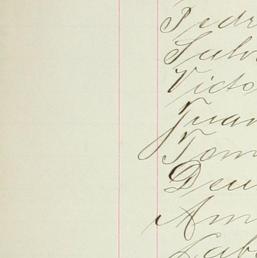 Pedr
Salv
Victo
Juan
Tom
Deu
Am
Lab